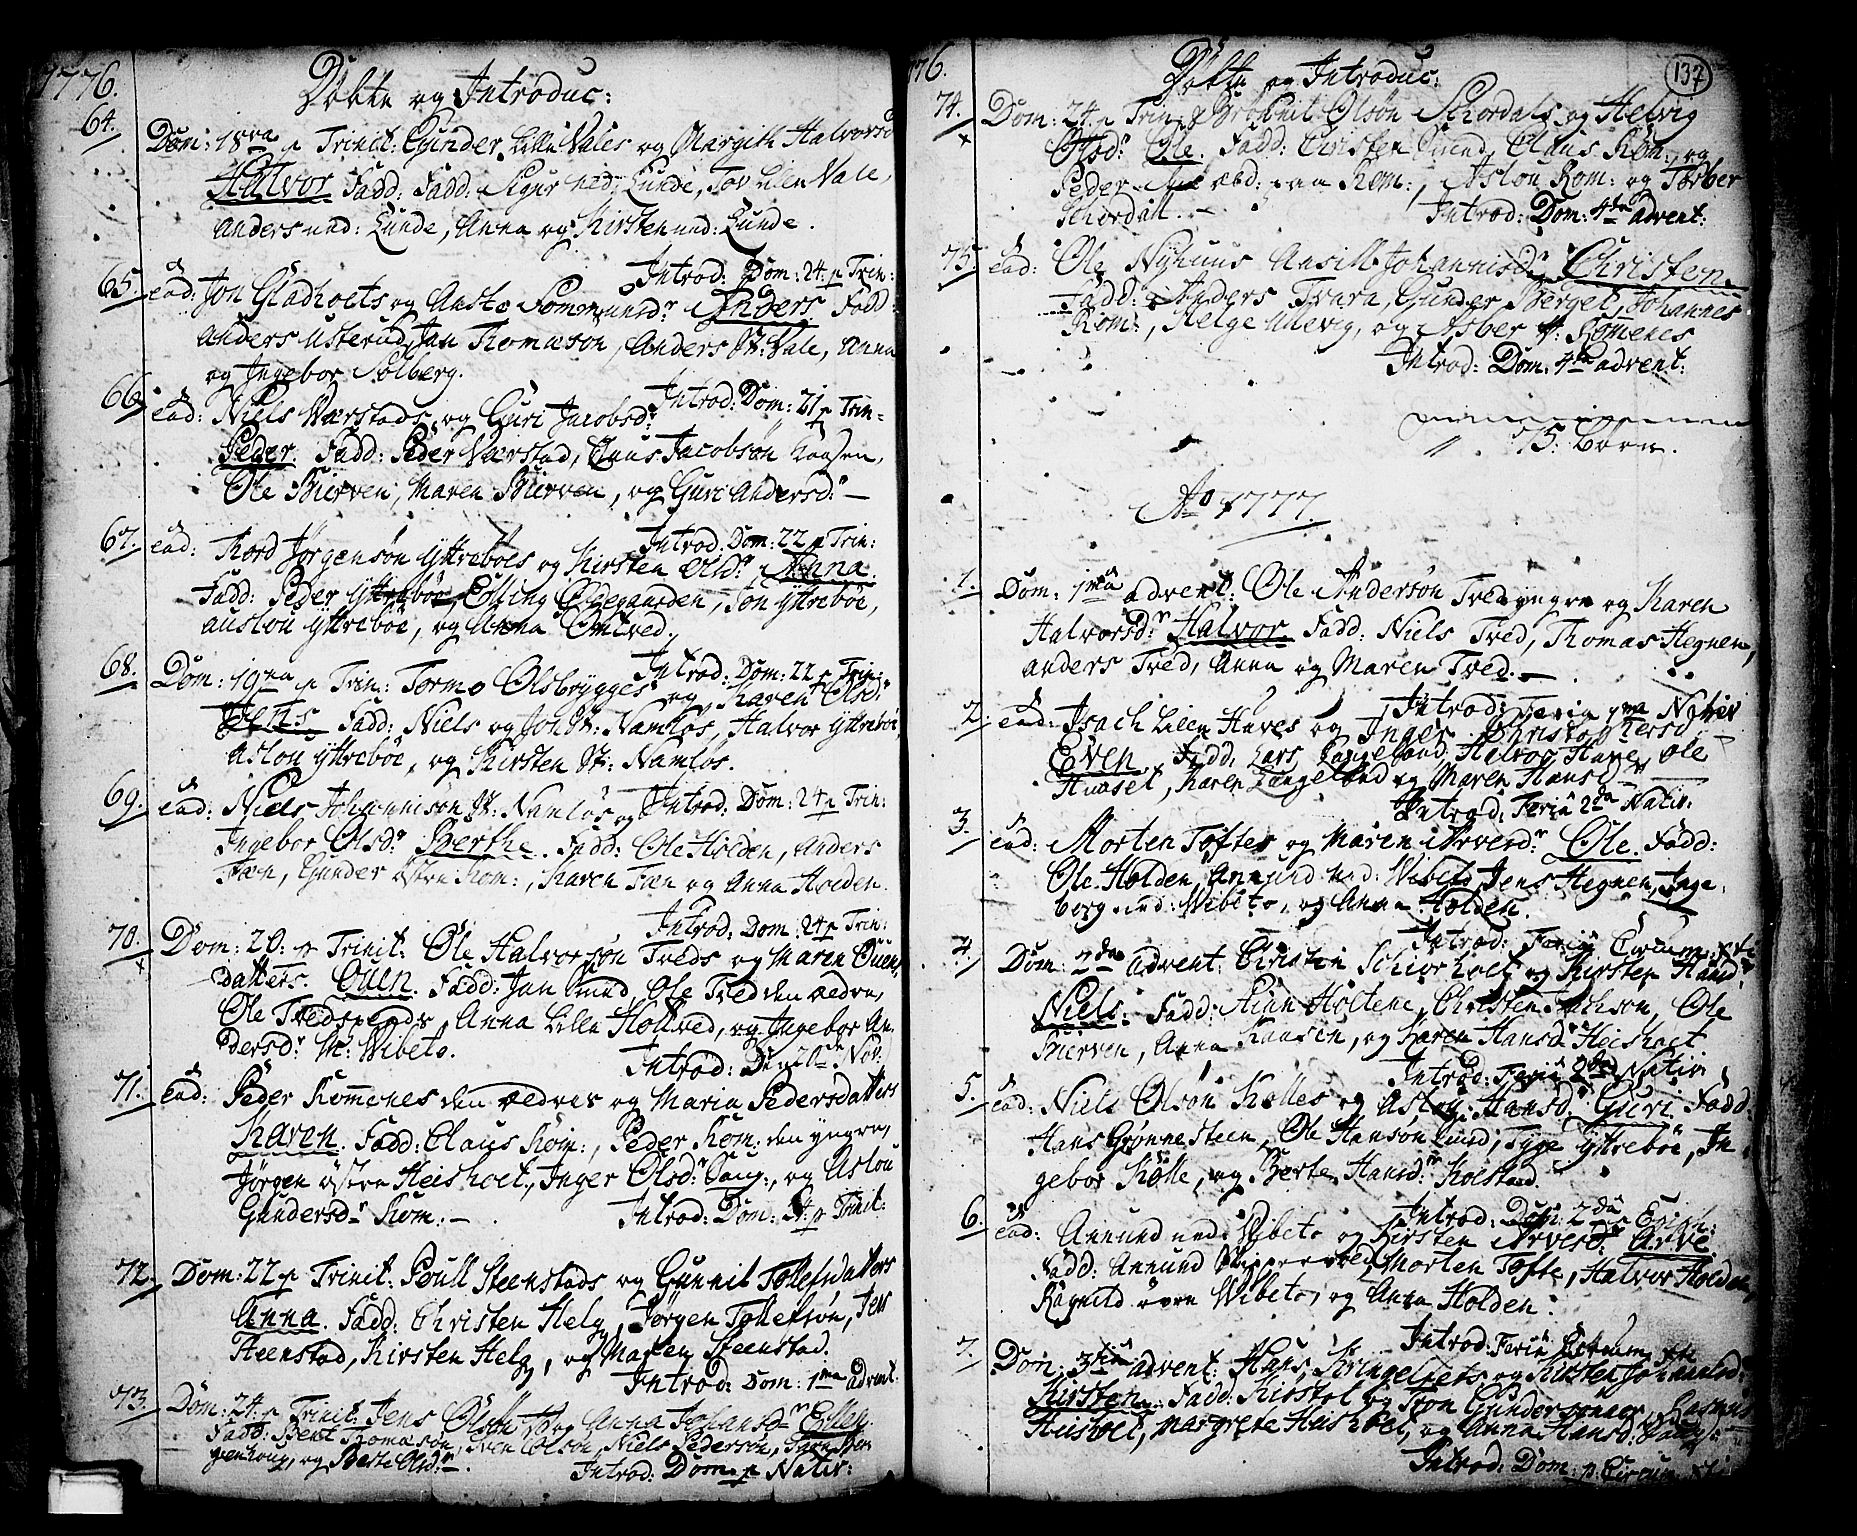 1776.
Döbte og Introduc:
64. Dom: 18va p Trinit: Gunder Lille Vales og Margith Halvorsd
Halvor Fadd: Fadd: Sigur ned: Lunde, Tov Lilen Vale,
Anders ned: Lunde, Anna og Kirsten ned: Lunde.
Introd: Dom: 24. p Trin:
65. ead: Jon Gladhoels og Aaste Sommunds: Anders. Fadd:
Anders Usterud, Jan Thomason, Anders St: Vale, Anna
og Ingebor Solberg.
Introd: Dom: 21 p Trin-
66. ead: Niels Værstads og Guri Jacobsd:
Peder. Fadd: Peder Værstad, Claus Jacobsøn Kaasen,
Ole Bierven, Maren Bierven, og Guri Andersd: —
Introd: Dom: 22 p Trin:
67. ead: Thord Jørgensøn Yttreböes og Kirsten Olsd: Anna.
Fadd: Peder Yttreböe, Elling Ödegaarden, Jon Yttreböe,
Aaslou Yttreböe, og Anna Omtved.
Introd: Dom: 22 p Trin:
68. Dom: 19na p Trin: Tormo Olsbrygges og Karen Olsd:
Jens Fadd: Niels og Jon St: Namlos, Halvor Yttreböe,
Aslou Yttreböe, og Kirsten St: Namlos.
Introd: Dom: 24 p Trin:
69. ead: Niels Johannison St: Namlos og
Ingebor Olsd: Berthe. Fadd: Ole Holden, Anders
Træn, Gunder östre Rom:, Karen Træn og Anna Holden.
Introd: Dom: 24 p Trin:
70. Dom: 20: p Trinit: Ole Halvorsøn Treds og Maren Ouens
datters. Ouen. Fadd: Jan Lund, Ole Tred den ældre,
Ole Tred yngre, Anna Lille Holtved, og Ingebor An
dersd: St: Wibeto.
Introd: Den 20de Nov:
71. ead: Peder Romenes den ældres og Maria Pedersdatters
Karen. Fadd: Claus Rom:, Peder Rom: den yngre,
Jörgen östre Heisholt, Inger Olsd: Saug:, og Aslou
Gundersd: Rom. —
Introd: Dom: 24: p Trinit:
72. Dom: 22 p Trinit: Poull Steenstads og Gunnil Tollefsdatters
Anna. Fadd: Christen Helg, Jørgen Tollefsøn, Jens
Steenstad, Kirsten Helg, og Maren Steenstad.
Introd: Dom: 1ma advent.
73. Dom: 24. p Trinit: Jens Olsøn og Anna Johansd: Ellen.
Fadd: Bent Thomasøn, Sven Olsøn, Niels Pedersøn,
og Berte Olsd: —
Introd: Dom: p Nativ:
76.
Döbte og Introduc:
137
74. Dom: 24. p Trin: Olsøn Schordals og Helvig
Olsd: Ole Fadd: Christen Strand, Claus Rom:, og
Peder Rom:, Aslou Rom: og Torber
Schordall. —
Introd: Dom: 4ta advent:
75. ead: Ole Nyhuus Ansill Johannisd: Christen.
Fadd: Anders Tvara, Gunder Berget, Johannes
Rom:, Helge Ullevig, og Asber Romenes
Introd: Dom: 4ta advent:
75. Börn.
Ao 1777.
1. Dom: 1ma advent: Ole Andersøn Tred yngre og Karen
Halvorsd: Halvor. Fadd: Niels Tred, Thomas Hegnen,
Anders Tred, Anna og Maren Tred. —
Introd: Feria 1ma Nativ
2. ead: Isach Lilen Haves og Inger Christophersd
Even. Fadd: Lars Langeland, Halvor Have, Ole
Huuset, Karen Langeland og Maren Hansd
Introd: Feria 2da Nativ:
3. ead: Morten Toftes og Maren Arvesd: Ole. Fadd:
Ole Holden, Annund ned: Wibeto, Jens Hegnen, Inge-
borg ned: Wibeto, og Anna Holden.
Introd: Feria Circum: xti
4. Dom: 2da advent: Christen Schiørholt og Kirsten Hansd:
Niels. Fadd: Finn Holtene, Christen Isachson, Ole
Bierven, Anna Kaasen, og Karen Hansd: Heisholt
Introd: Feria 2da Nativ
5. ead: Niels Olsøn Kolles og Aslou Hansd: Guri Fadd:
Hans Grønnesteen, Ole Hansøn Lund, Tyge Yttreböe, In
gebor Kolle, og Berte Hansd: Kolstad.
Introd: Dom: 2da Epiph:
6. ead: Annund ned: Wibeto og Kirsten Arvesd: Arve
Fadd: Annund Morten Tofte, Halvor Holden,
Ragnild övre Wibeto, og Anna Holden.
Introd: Feria Circum: xti
7. Dom: 3tia advent: Hans Kringelsets og Kirsten Johannisd:
Kirsten. Fadd: Kirstol og Jon Gundersønner, Rasmus
Huusholt, Margrete Heisholt, og Anna Hansd: Saug:
Introd: Dom: p: Circum: xti